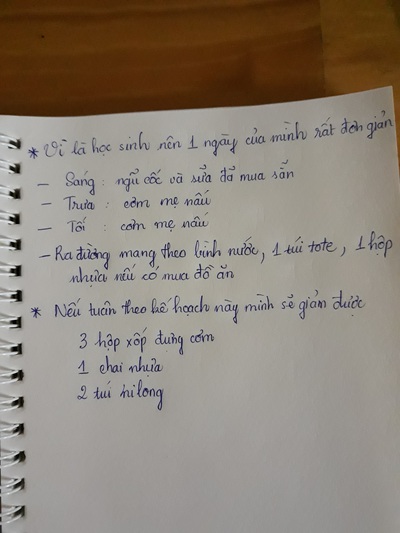 * Vì là học sinh nên 1 ngày của mình rất đơn giản
- Sáng : ngũ cốc và sữa đã mua sẵn
- Trưa : cơm mẹ nấu
- Tối : cơm mẹ nấu
- Ra đường mang theo bình nước, 1 túi tote, 1 hộp
nhựa nếu có mua đồ ăn
* Nếu tuân theo kế hoạch này mình sẽ giảm được
3 hộp xốp đựng cơm
1 chai nhựa
2 túi nilong